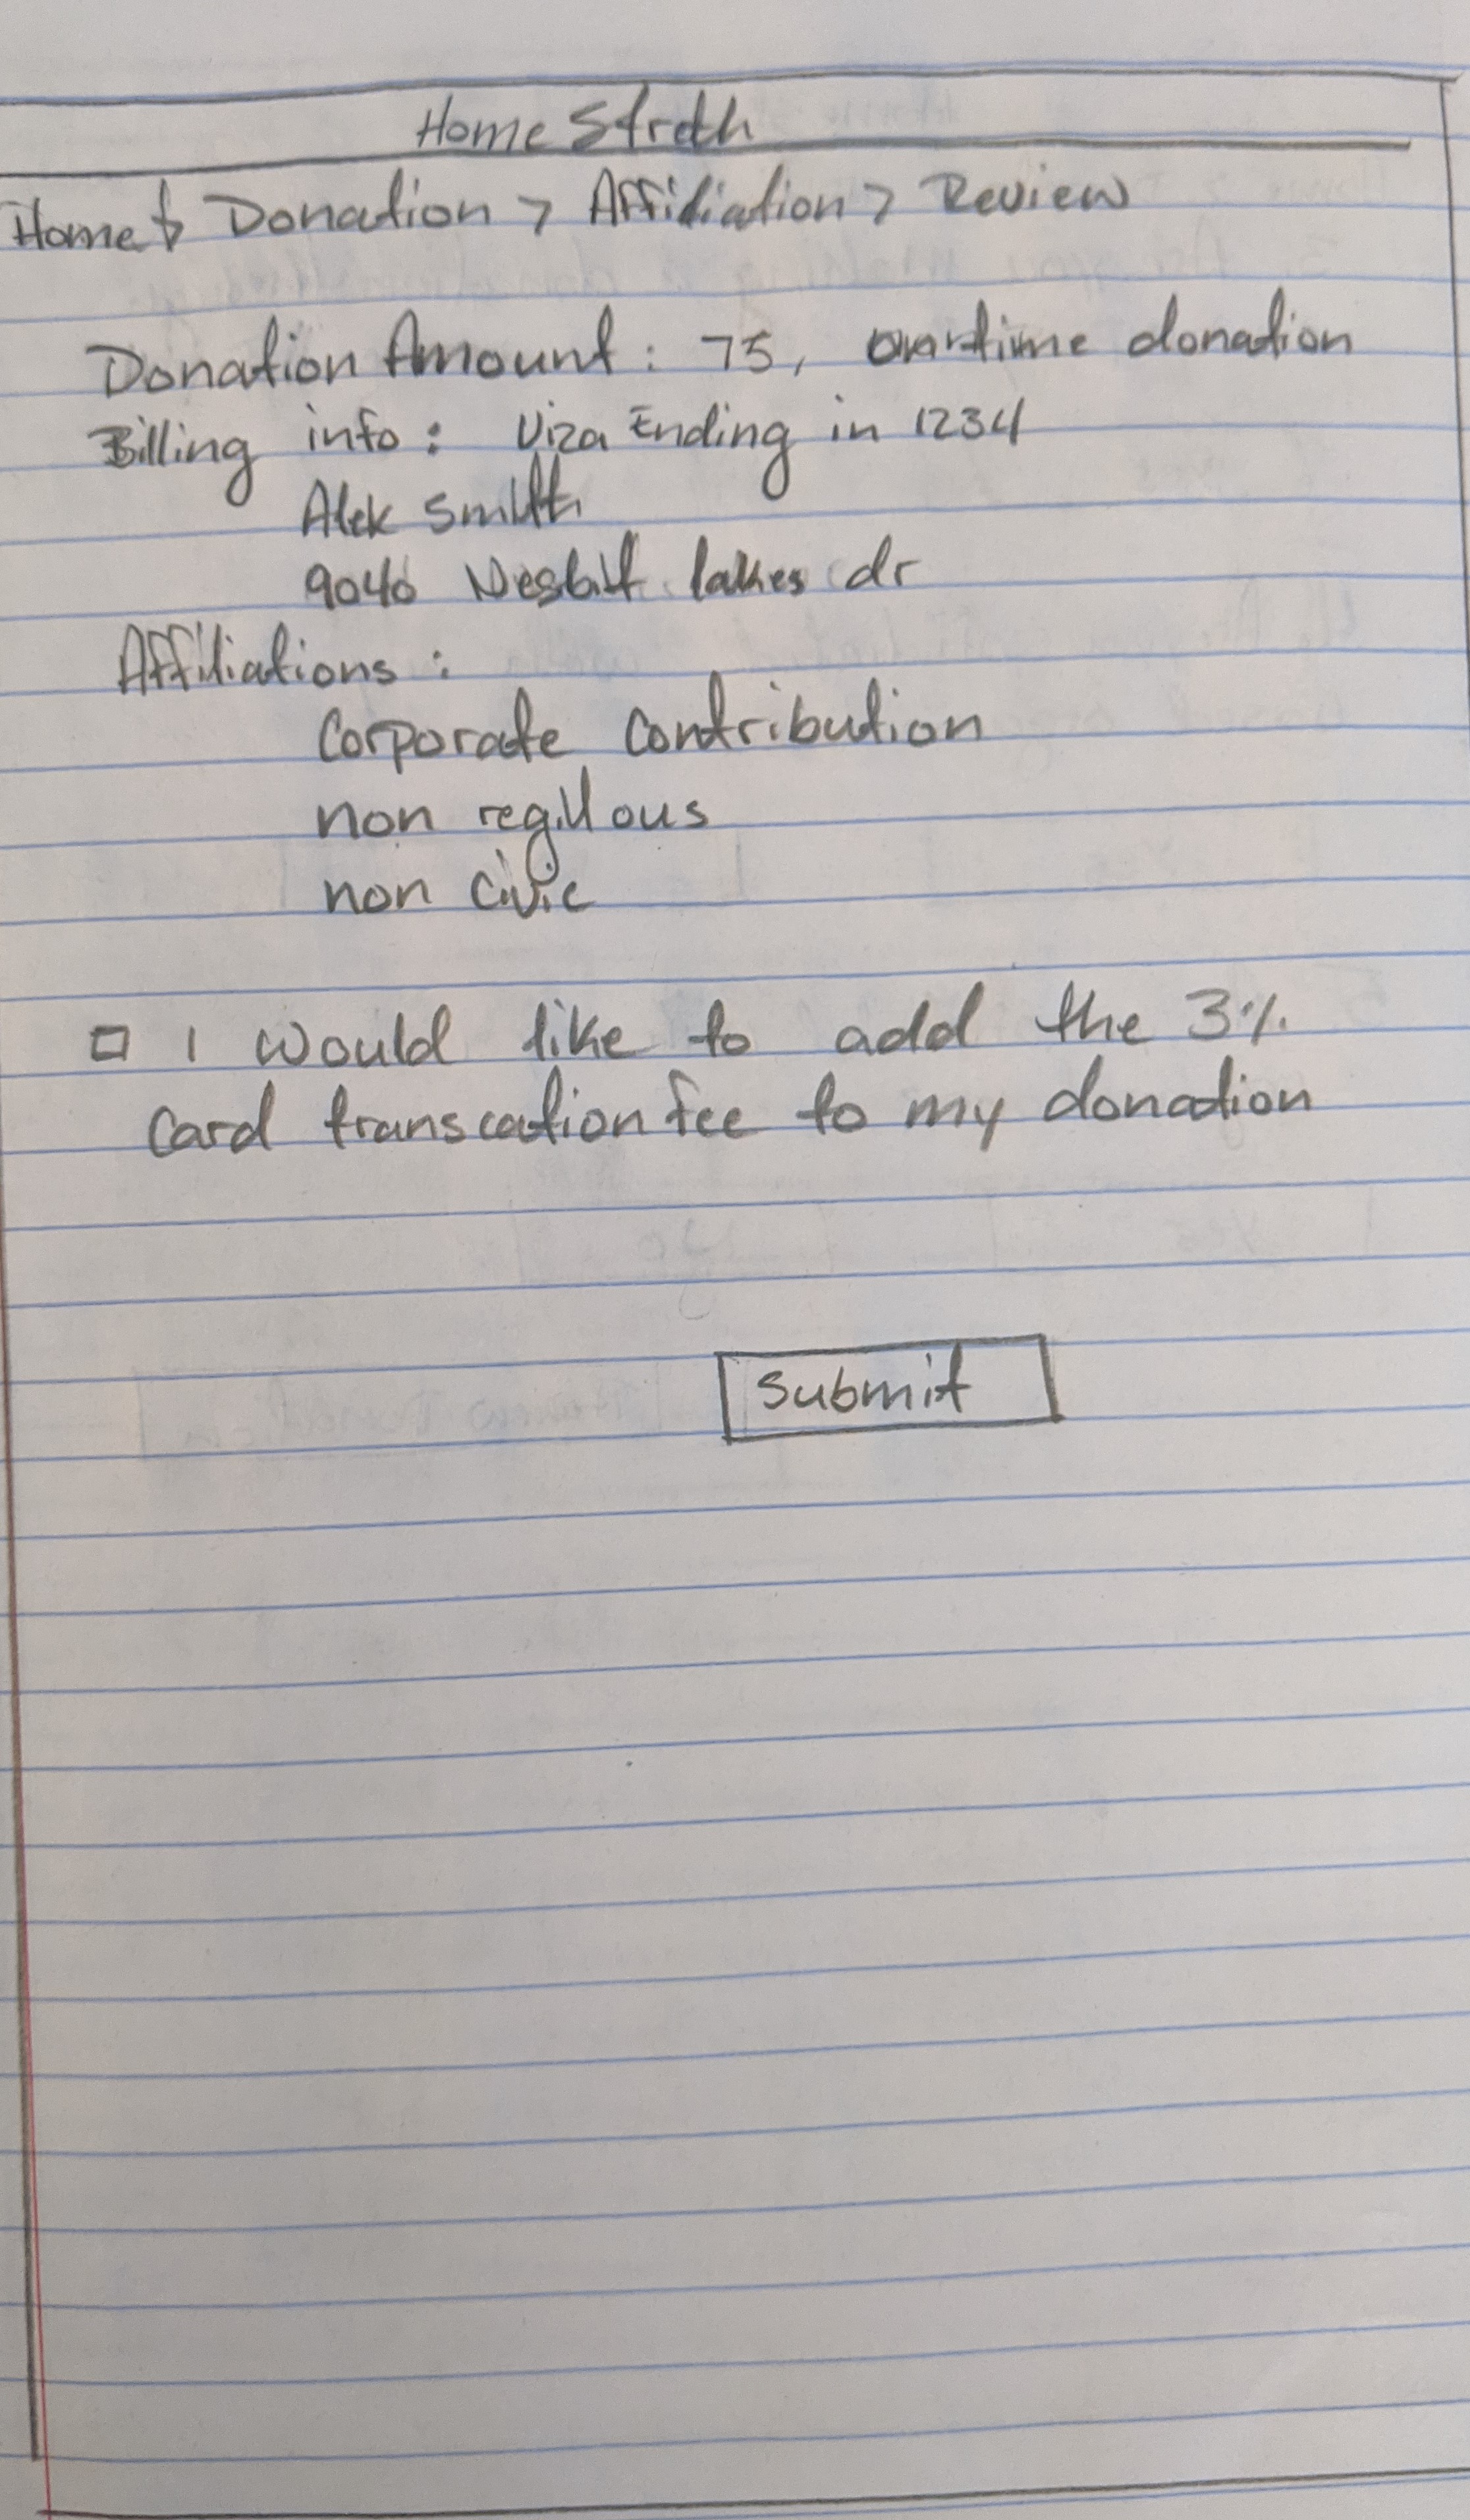 Home Stretch
Home > Donation > Affiliation > Review
Donation Amount: 75, one time donation
Billing info: Viza Ending in 1234
Alek Smith
9040 Nesbit lakes dr
Affiliations:
Corporate Contribution
non regillous
non civic
I would like to add the 3%
card transcation fee to my donation
Submit